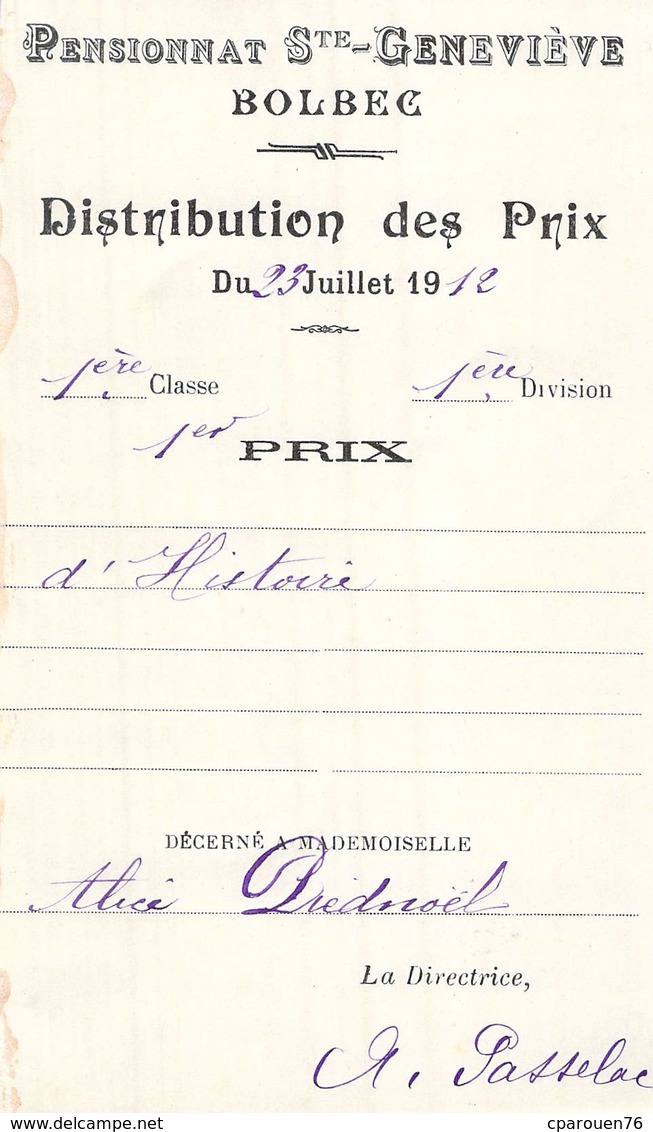 PENSIONNAT STE-GENEVIÈVE
BOLBEC
Distribution des Prix
Du 23 Juillet 1912
1ère Classe 1ère Division
1er PRIX
d'Histoire
DÉCERNÉ A MADEMOISELLE
Alice Prédnoël
La Directrice,
A. Passelac
https://www.delcampe.net
cparouen76